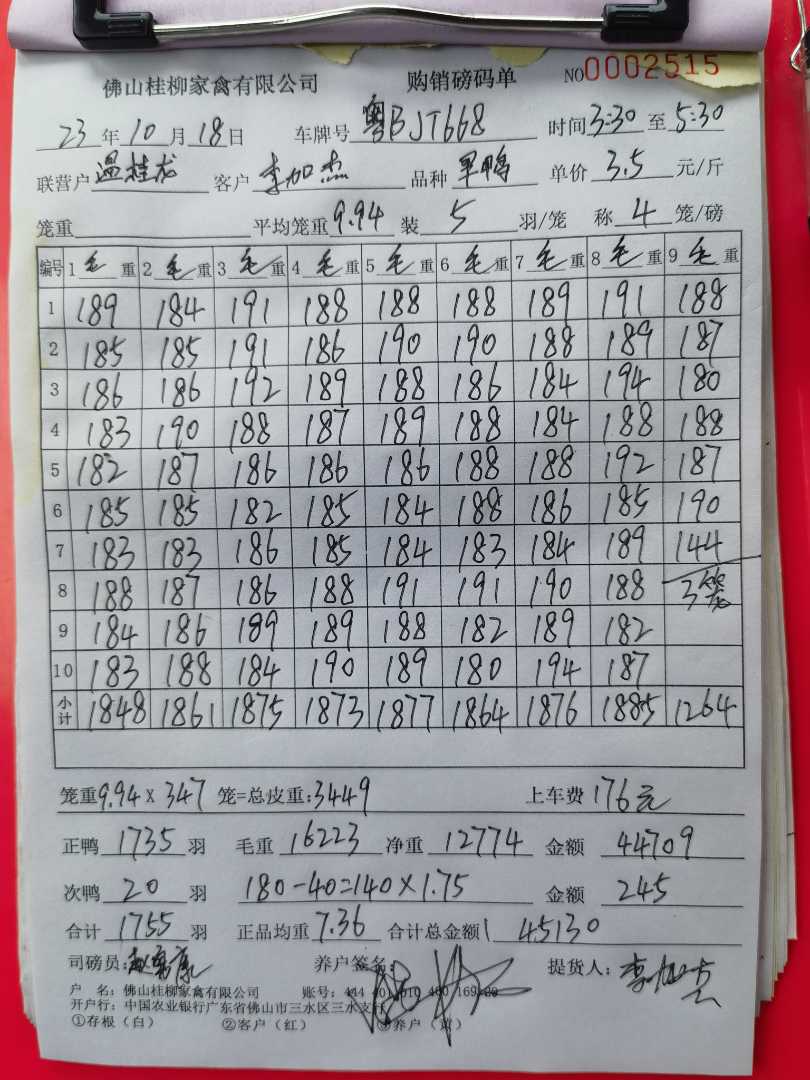 佛山桂柳家禽有限公司 购销磅码单 NO0002515
23年10月18日 车牌号粤BJT668 时间3:30至5:30
联营户温桂龙 客户李加杰 品种旱鸭 单价3.5元/斤
笼重 平均笼重9.94 装5羽/笼 称4笼/磅
编号 1毛重 2毛重 3毛重 4毛重 5毛重 6毛重 7毛重 8毛重 9毛重
1 189 184 191 188 188 188 189 191 188
2 185 185 191 186 190 190 188 189 187
3 186 186 192 189 188 186 184 194 180
4 183 190 188 187 189 188 184 188 188
5 182 187 186 186 186 188 188 192 187
6 185 185 182 185 184 188 186 185 190
7 183 183 186 185 184 183 184 189 144
8 188 187 186 188 191 191 190 188 3笼
9 184 186 189 189 188 182 189 182
10 183 188 184 190 189 180 194 187
小计 1848 1861 1875 1873 1877 1864 1876 1885 1264
笼重9.94×347笼=总皮重:3449 上车费176元
正鸭1735羽 毛重16223 净重12774 金额44709
次鸭20羽 180-40=140×1.75 金额245
合计1755羽 正品均重7.36 合计总金额45130
司磅员: 养户签名: 提货人:李加杰
户 名:佛山桂柳家禽有限公司 账号:
开户行:中国农业银行广东省佛山市三水区三水支行
①存根(白) ②客户(红) ③养户(黄)